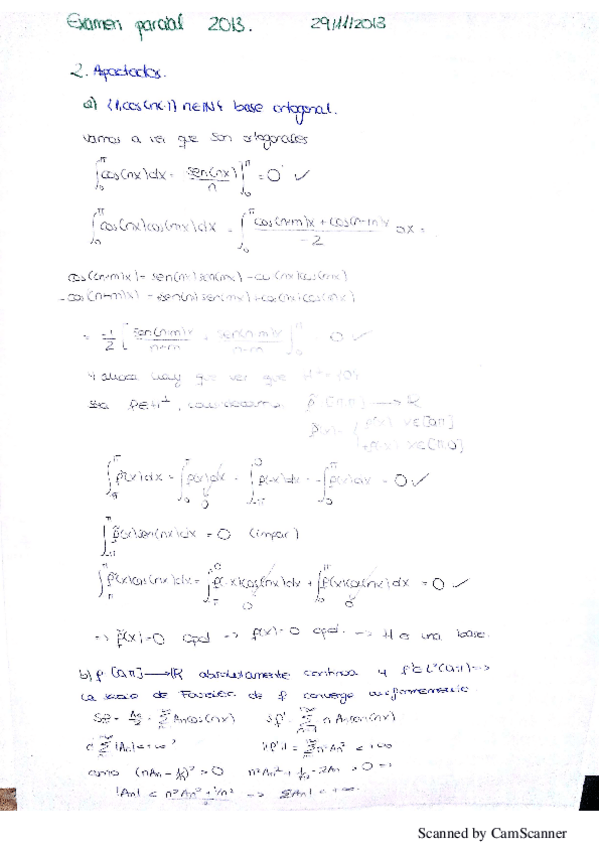 Examen parcial 2013. 29/11/2013
2. Apartados.
a) {1, cos(nx)} n∈ℕ} base ortogonal.
Vamos a ver que son ortogonales
∫₀^π cos(nx)dx = sen(nx)/n ]₀^π = 0 ✓
∫₀^π cos(nx)cos(mx)dx = ∫₀^π cos(n+m)x + cos(n-m)x / -2 dx =
cos(n+m)x = sen(nx)sen(mx) - cos(nx)cos(mx)
-cos(n+m)x = sen(nx)sen(mx) + cos(nx)cos(mx)
= -1/2 [ sen(n+m)x / n+m + sen(n-m)x / n-m ]₀^π = 0 ✓
Y ahora hay que ver que H^⊥ = {0}
Sea f∈H^⊥, consideramos
∫ f(x)dx = ∫ f(x)dx = 0 ✓
∫ f(x)sen(nx)dx = 0 (impar)
∫ f(x)cos(nx)dx = ∫ f(-x)cos(nx)dx + ∫ f(x)cos(nx)dx = 0 ✓
=> f(x)=0 cpd -> f(x)=0 cpd. -> H es una base.
b) f [0,π] -> ℝ absolutamente continua y f'∈L²(0,π) ->
La serie de Fourier de f converge uniformemente.
Sf = A₀/2 + Σ Ancos(nx) Sf' = Σ nAnsen(nx)
¿ Σ|An| < +∞ ? ||f'|| = Σ n²An² < +∞
como (nAn - 1/n)² > 0 n²An² + 1/n² - 2An > 0 =>
|An| < n²An² + 1/n² / 2 -> Σ|An| < +∞.
Scanned by CamScanner